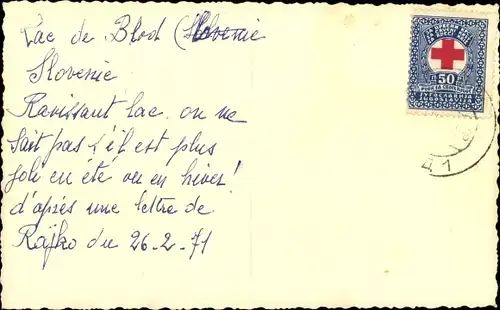 Lac de Bled (Slovenie
Slovenie
Ravissant lac. on ne
sait pas s'il est plus
joli en été ou en hiver!
d'après une lettre de
Rajko du 26-2-71
50